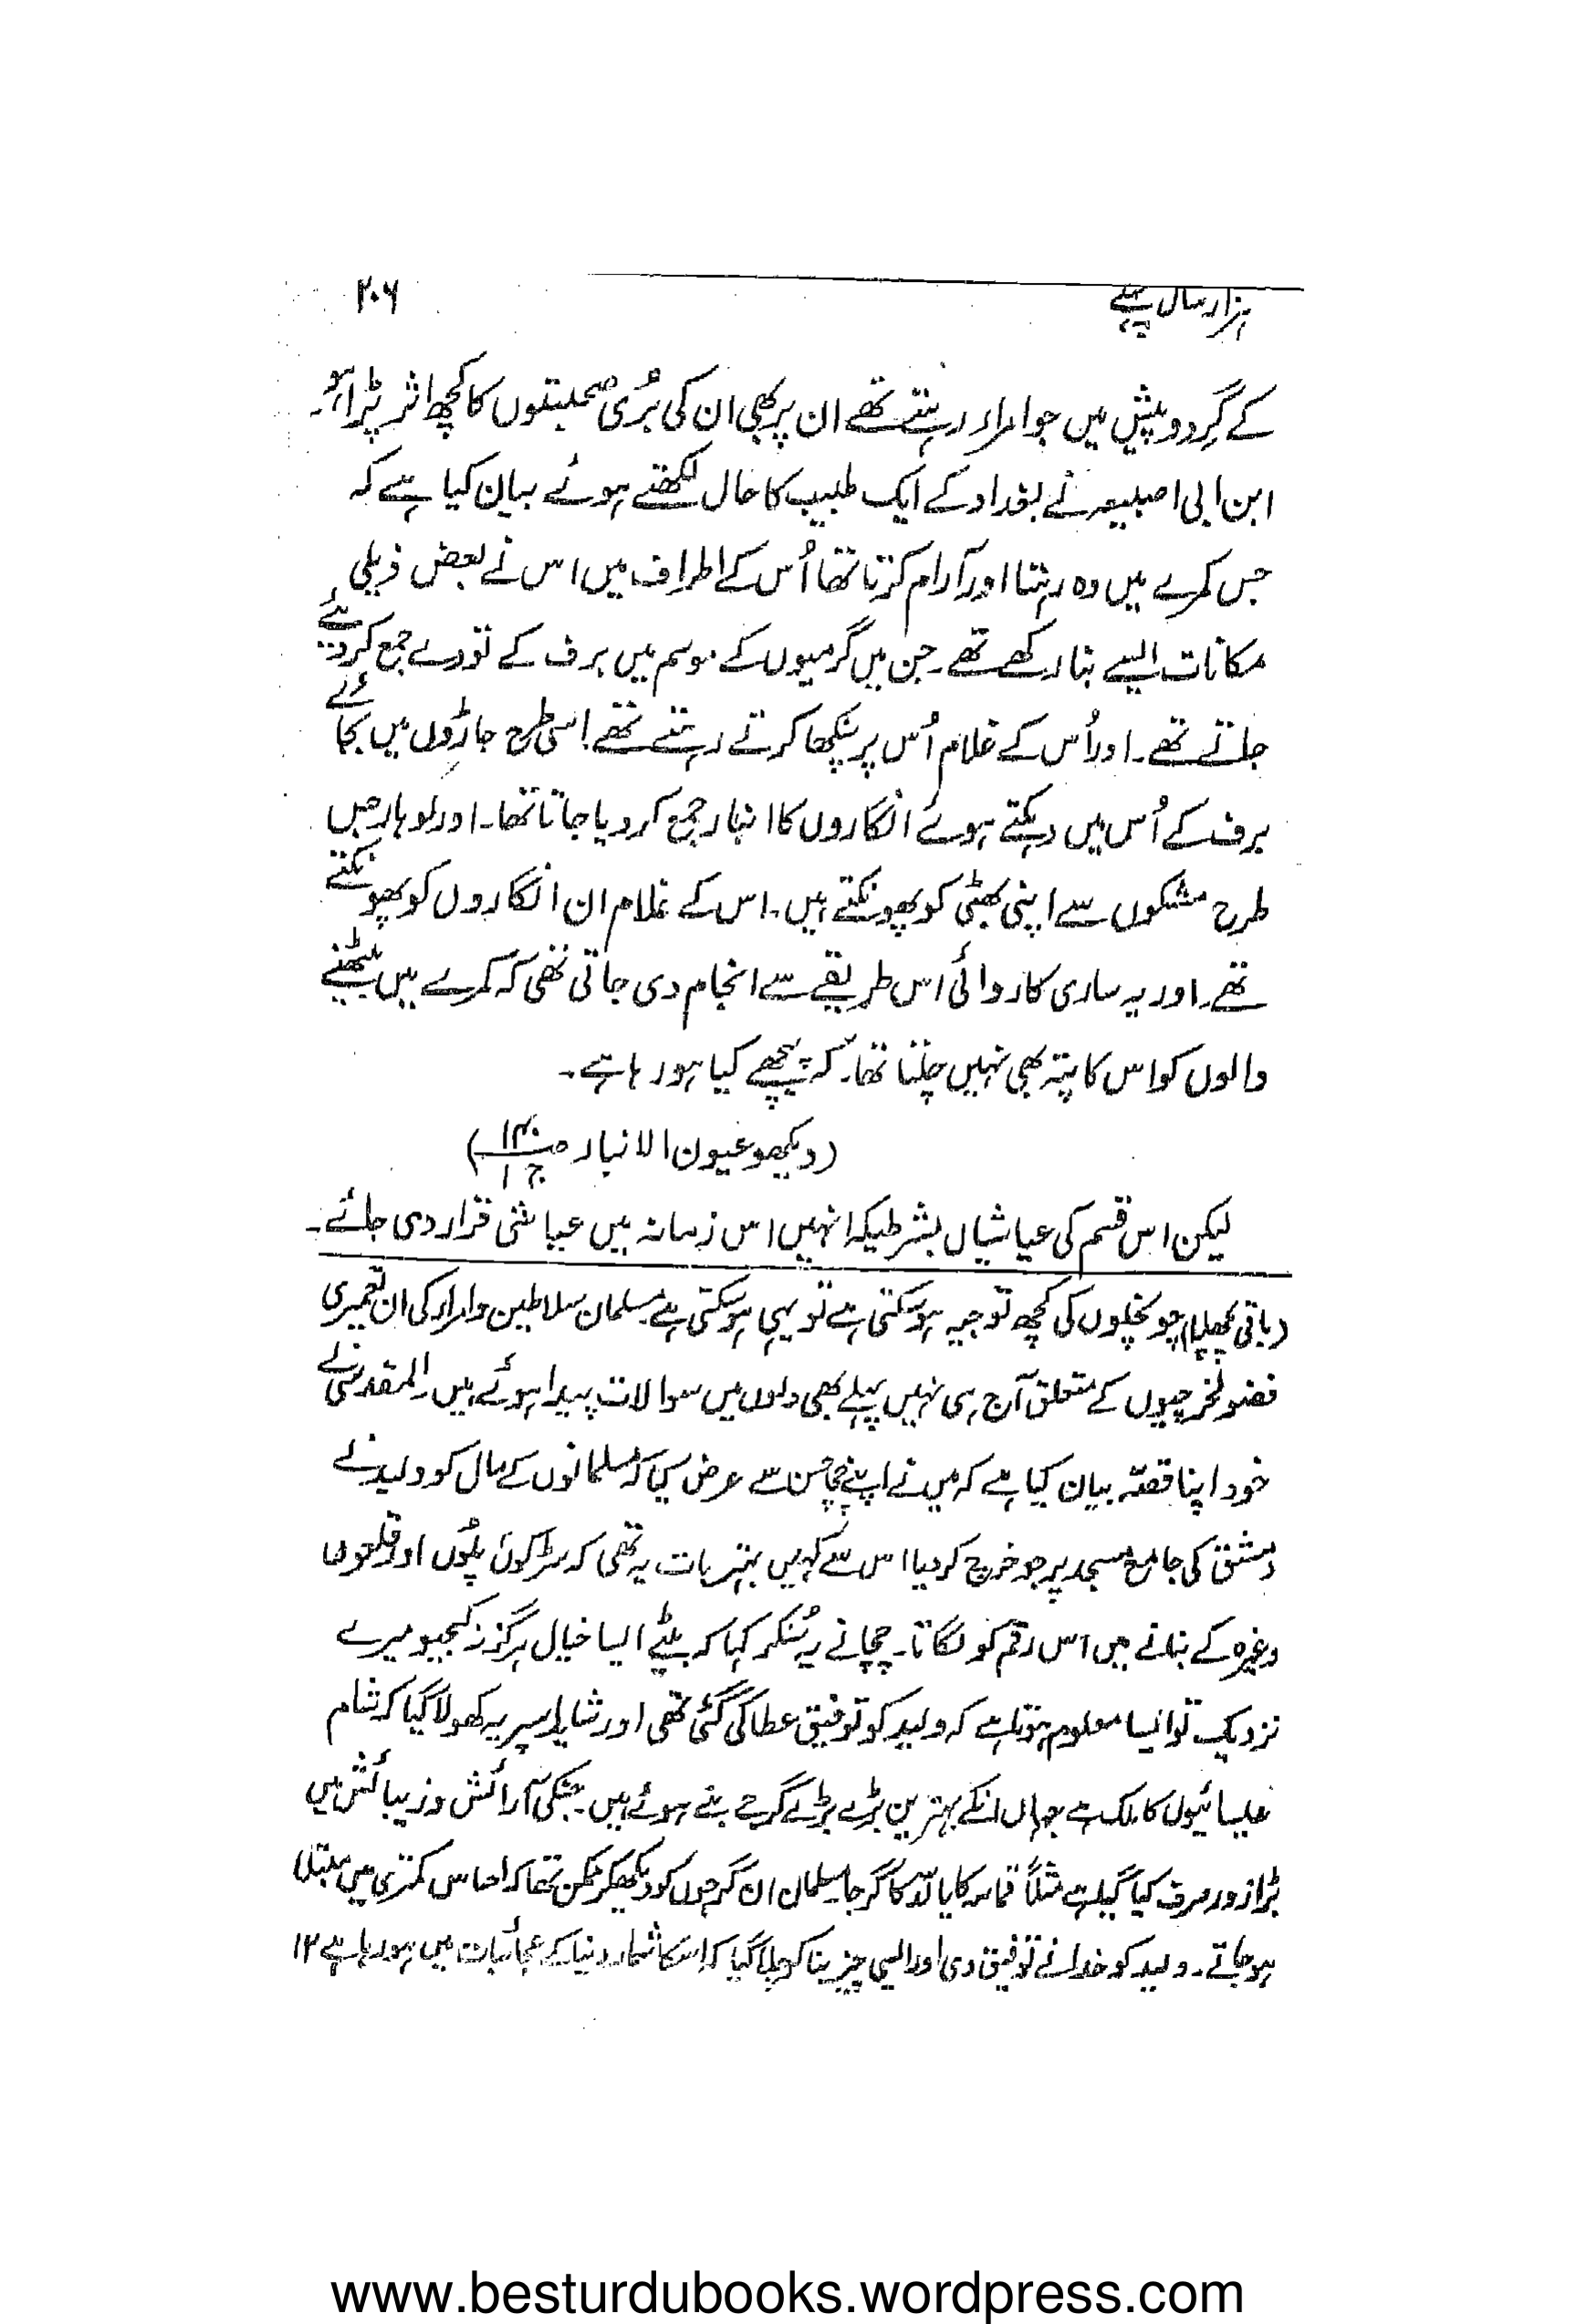 ہزار سال پہلے
۲۰۶
کے گردوپیش میں جو امراء رہتے تھے ان پر بھی ان کی بُری صحبتوں کا کچھ اثر پڑا ہو۔
ابن ابی اصیبعہ نے بغداد کے ایک طبیب کا حال لکھتے ہوئے بیان کیا ہے کہ
جس کمرے میں وہ رہتا اور آرام کرتا تھا اُس کے اطراف میں اس نے بعض ذیلی
مکانات ایسے بنا رکھے تھے۔ جن میں گرمیوں کے موسم میں برف کے تودے جمع کر دیئے
جاتے تھے۔ اور اُس کے غلام اُس پر پنکھا کرتے رہتے تھے اسی طرح جاڑوں میں بجائے
برف کے اُس میں دہکتے ہوئے انگاروں کا انبار جمع کر دیا جاتا تھا۔ اور لوہار جس
طرح مشکوں سے اپنی بھٹی کو پھونکتے ہیں۔ اس کے غلام ان انگاروں کو پھونکتے
تھے۔ اور یہ ساری کاروائی اس طریقے سے انجام دی جاتی تھی کہ کمرے میں بیٹھنے
والوں کو اس کا پتہ بھی نہیں چلتا تھا۔ کہ پیچھے کیا ہو رہا ہے۔
(دیکھو عیون الانباء صـ۱۴۰ ج ۱)
لیکن اس قسم کی عیاشیاں بشرطیکہ انہیں اس زمانہ میں عیاشی قرار دی جائے۔
(باقی پچھلیا) چونچلوں کی کچھ توجیہ ہو سکتی ہے تو یہی ہو سکتی ہے مسلمان سلاطین و امراء کی ان تعمیری
فضولخرچیوں کے متعلق آج ہی نہیں پہلے بھی دلوں میں سوالات پیدا ہوئے ہیں المقدسی نے
خود اپنا قصہ بیان کیا ہے کہ میں نے اپنے چچا حسن سے عرض کیا کہ مسلمانوں کے مال کو ولید نے
دمشق کی جامع مسجد پر جو خرچ کر دیا اس سے کہیں بہتر بات یہ تھی کہ سڑکوں پلوں اور قلعوں
وغیرہ کے بنانے میں اس رقم کو لگاتا۔ چچا نے یہ سُنکر کہا کہ بیٹے ایسا خیال ہرگز نہ کیجیو میرے
نزدیک تو ایسا معلوم ہوتا ہے کہ ولید کو توفیق عطا کی گئی تھی اور شاید اسپر یہ کھولا گیا کہ شام
عیسائیوں کا ملک ہے جہاں انکے بہترین بڑے بڑے گرجے بنے ہوئے ہیں۔ جنکی آرائش و زیبائش میں
بڑا زور صرف کیا گیا ہے مثلاً قمامہ کا یا لُدّ کا گرجا مسلمان ان گرجوں کو دیکھکر ممکن تھا کہ احساس کمتری میں مبتلا
ہو جاتے۔ ولید کو خدا نے توفیق دی اور ایسی چیز بنا کر چلا گیا کہ اسکا شمار دنیا کے عجائبات میں ہو رہا ہے ۱۲
www.besturdubooks.wordpress.com